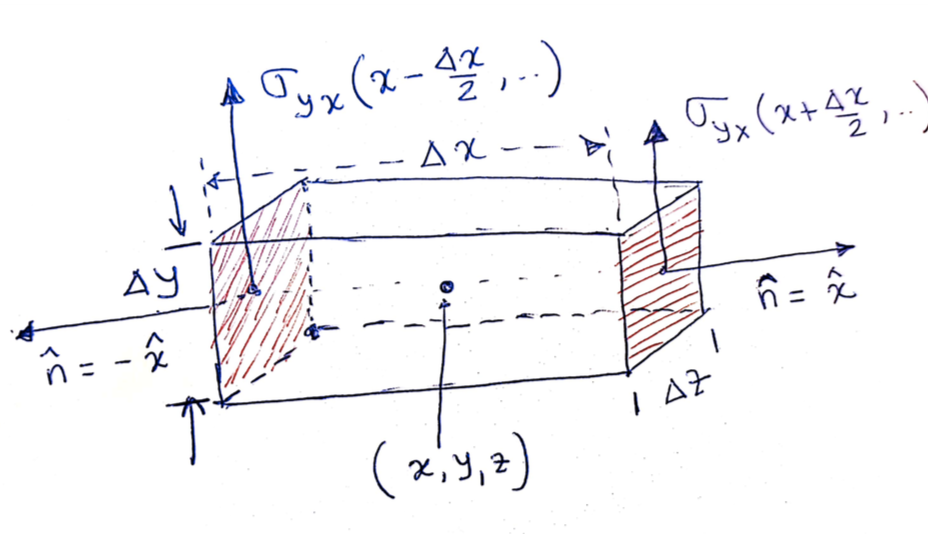 σyx(x−Δx/2,..)
σyx(x+Δx/2,..)
Δx
Δy
n̂ = −x̂
n̂ = x̂
Δz
(x,y,z)